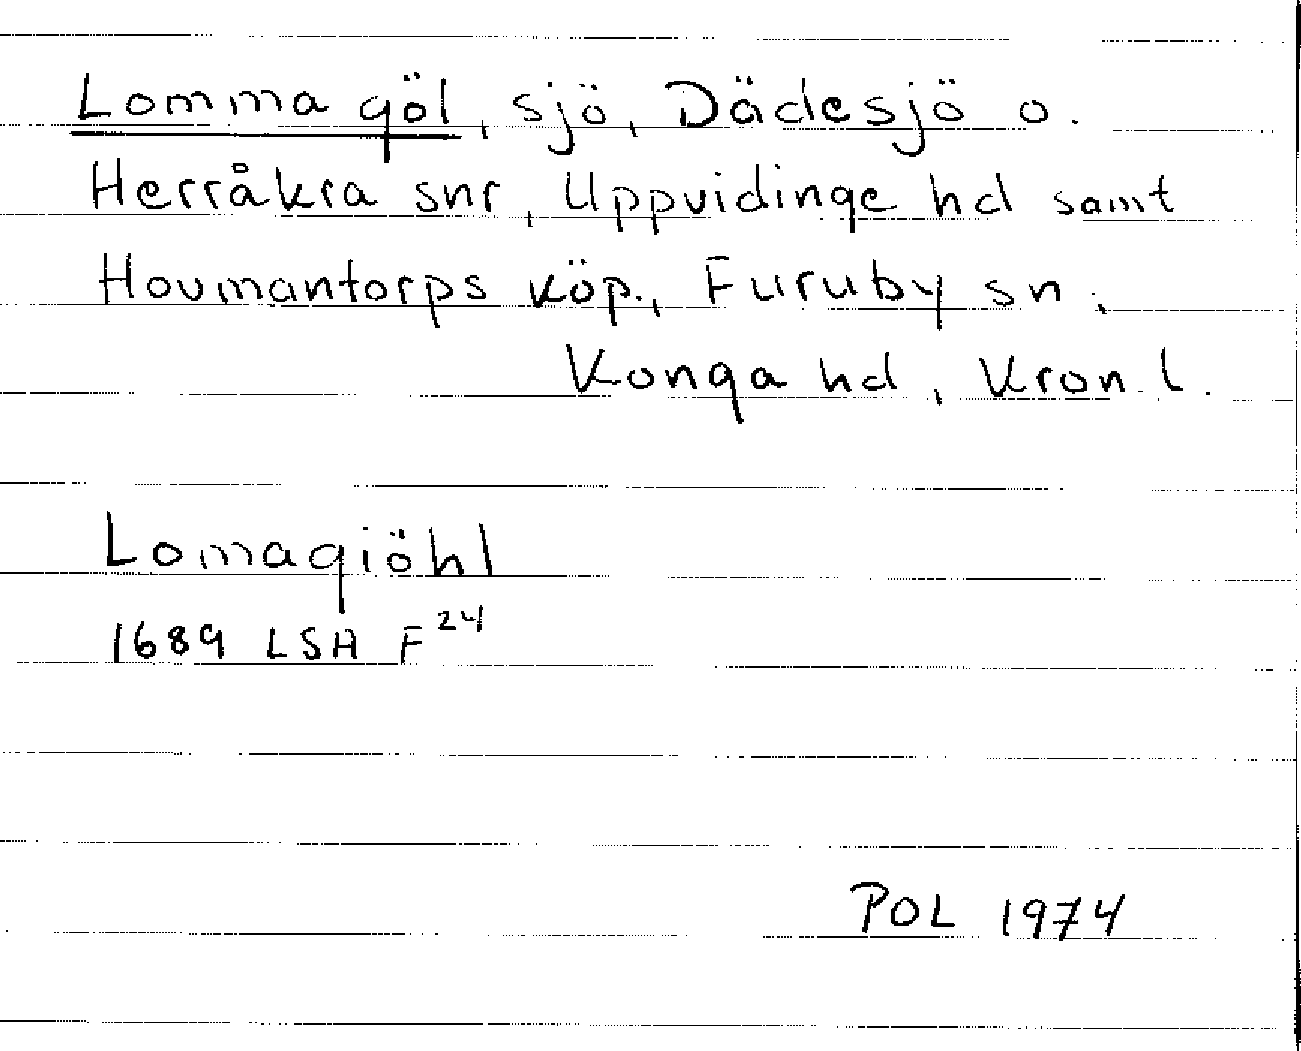 Lomma göl, sjö, Dädesjö o.
Herråkra snr, Uppvidinge hd samt
Hovmantorps köp., Furuby sn,
Konga hd, Kron. l.
Lomagiöhl
1689 LSA F 24
POL 1974